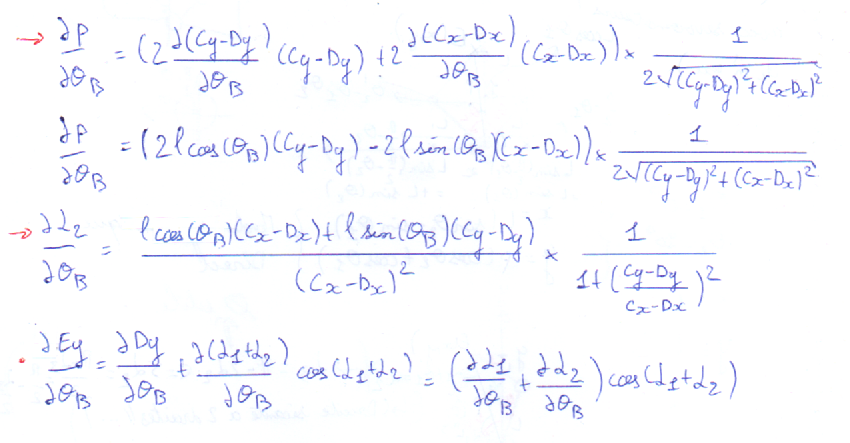 → ∂P/∂θ_B = (2 ∂(Cy-Dy)/∂θ_B (Cy-Dy) + 2 ∂(Cx-Dx)/∂θ_B (Cx-Dx)) × 1/(2√((Cy-Dy)²+(Cx-Dx)²))
∂P/∂θ_B = (2l cos(θ_B)(Cy-Dy) - 2l sin(θ_B)(Cx-Dx)) × 1/(2√((Cy-Dy)²+(Cx-Dx)²))
→ ∂α_2/∂θ_B = (l cos(θ_B)(Cx-Dx) + l sin(θ_B)(Cy-Dy))/(Cx-Dx)² × 1/(1+((Cy-Dy)/(Cx-Dx))²)
• ∂Ey/∂θ_B = ∂Dy/∂θ_B + ∂(α_1+α_2)/∂θ_B cos(α_1+α_2) = (∂α_1/∂θ_B + ∂α_2/∂θ_B) cos(α_1+α_2)